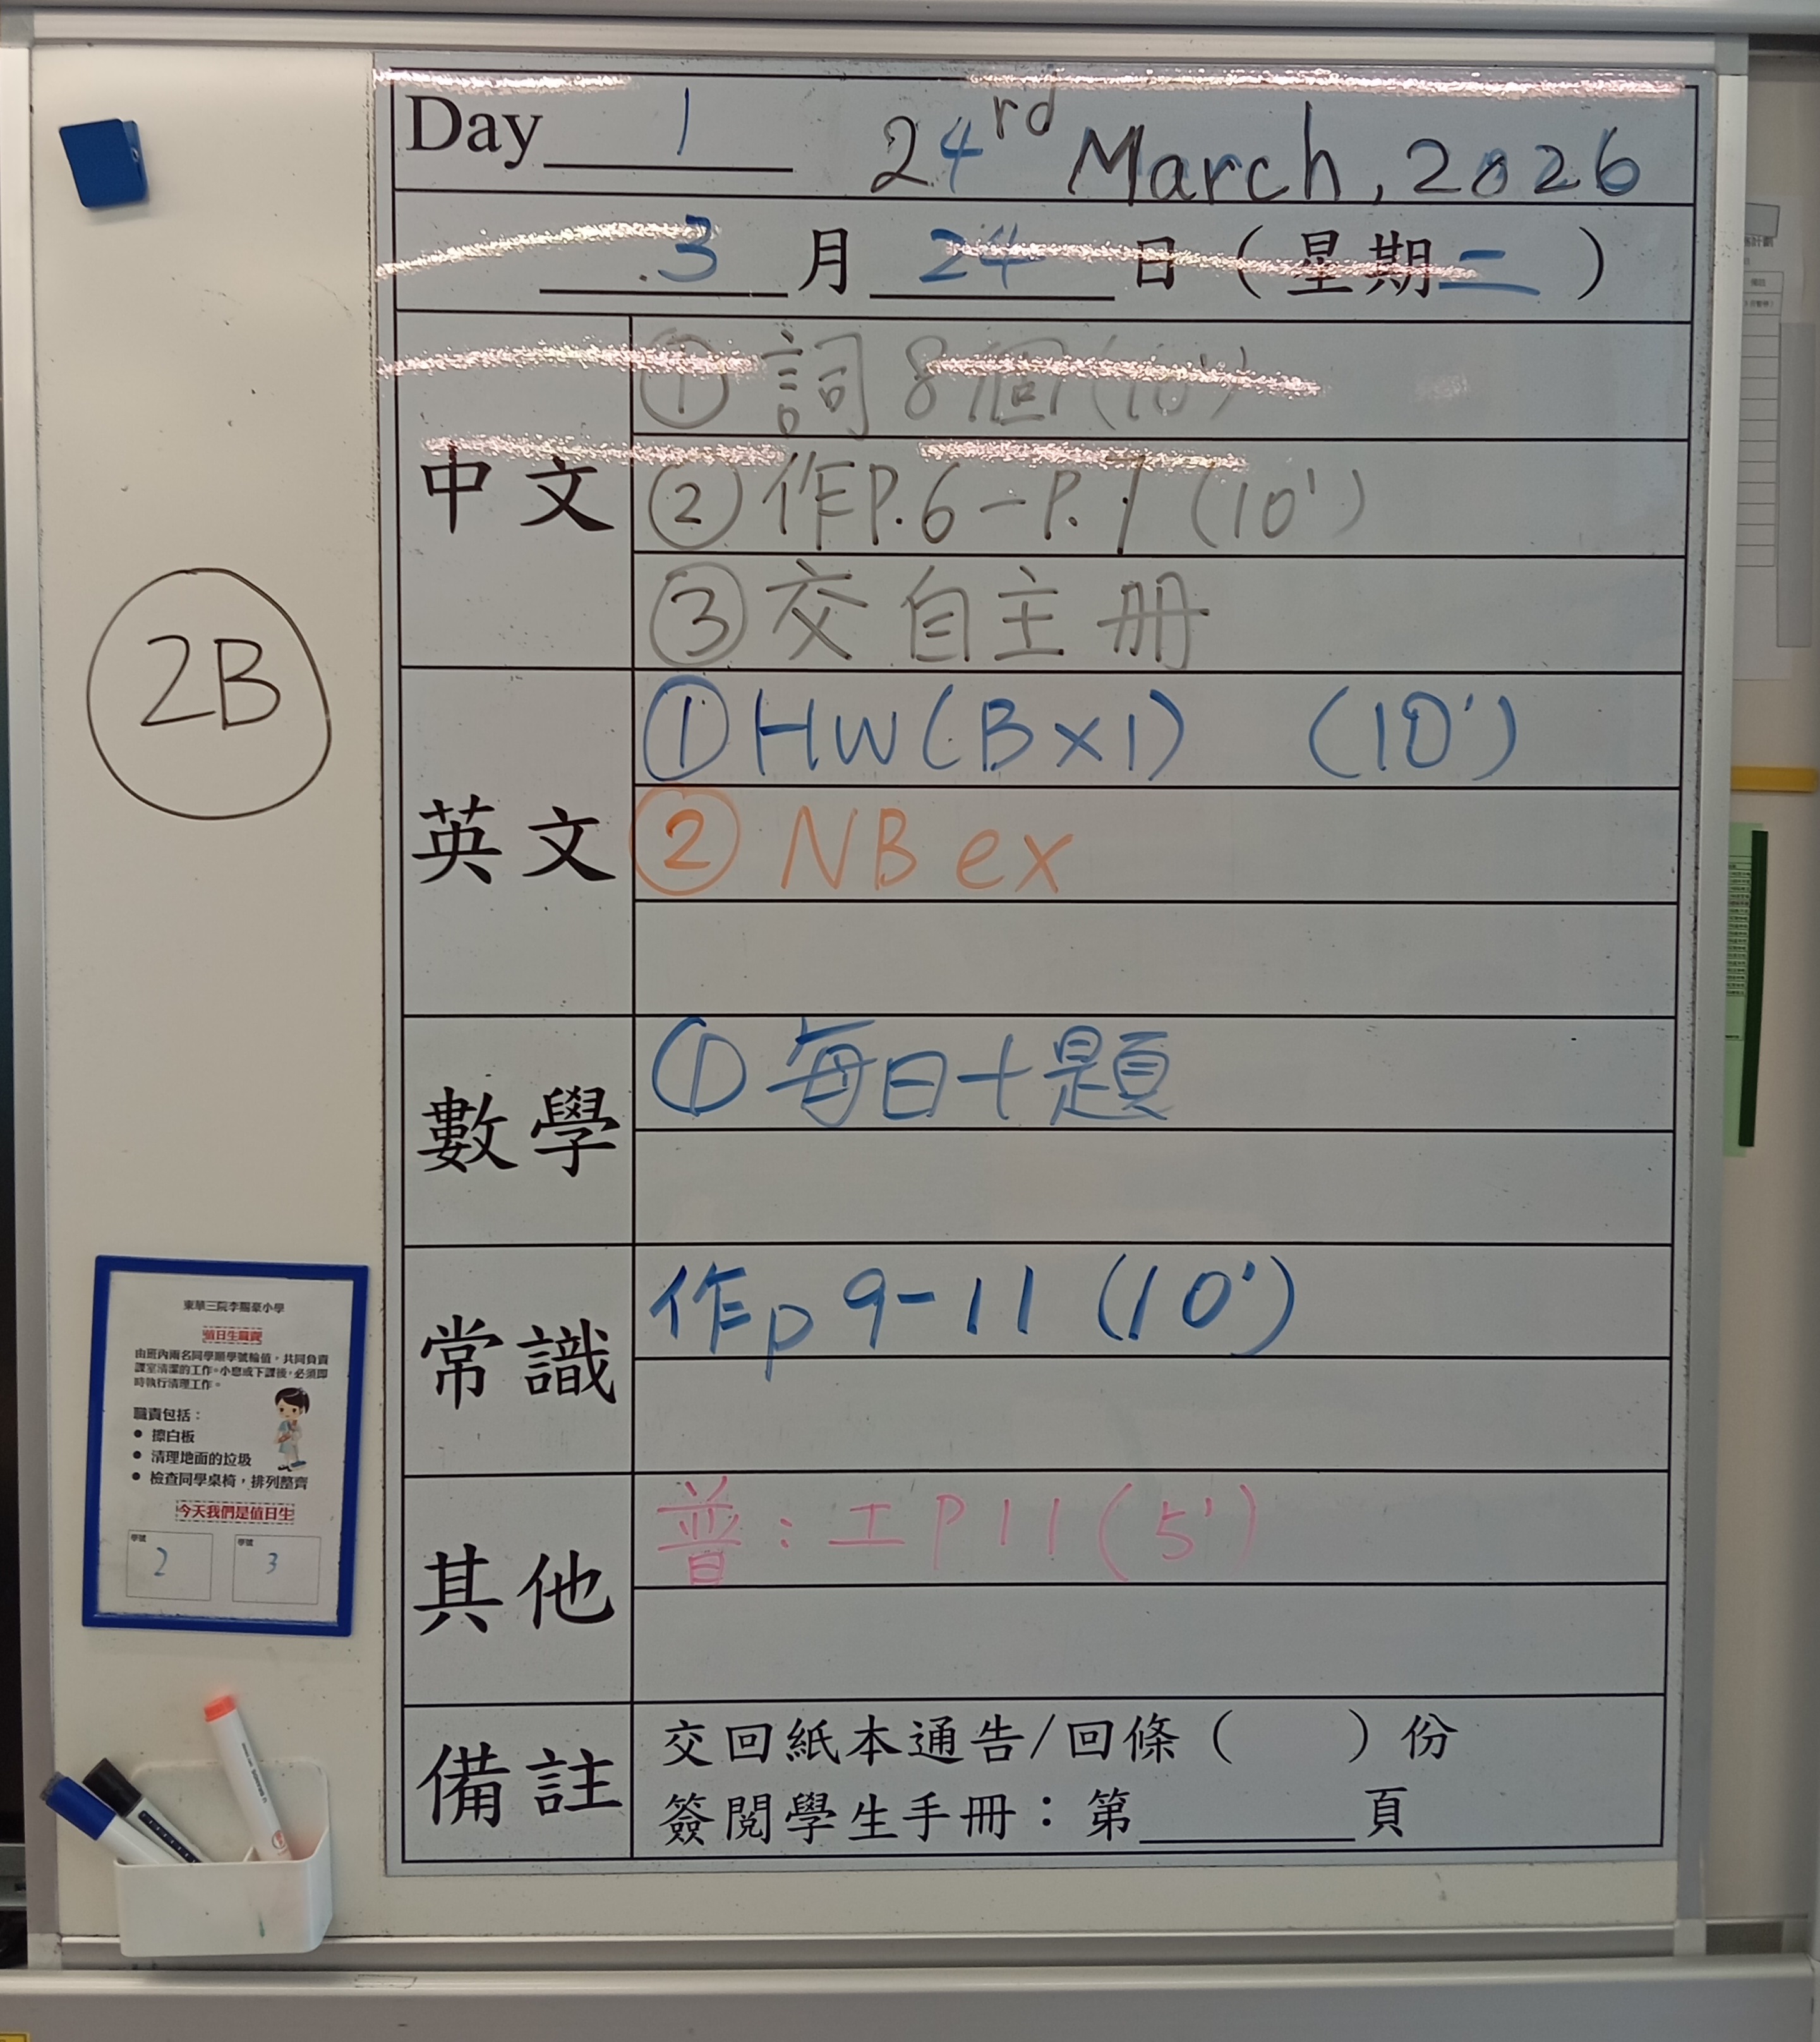 Day 1 24rd March, 2026
3 月 24 日 ( 星期二 )
中文
① 詞 8 個 (10')
② 作P.6-P.7 (10')
③ 交 自主冊
英文
① HW(B×1) (10')
② NB ex
數學
① 每日十題
常識
作p 9-11 (10')
其他
普:工P11(5')
備註
交回紙本通告/回條( )份
簽閱學生手冊:第 頁
2B
東華三院李賜豪小學
值日生職責
由班內兩名同學順學號輪值,共同負責
課室清潔的工作。小息或下課後,必須即
時執行清理工作。
職責包括:
● 擦白板
● 清理地面的垃圾
● 檢查同學桌椅,排列整齊
今天我們是值日生
學號 2 學號 3